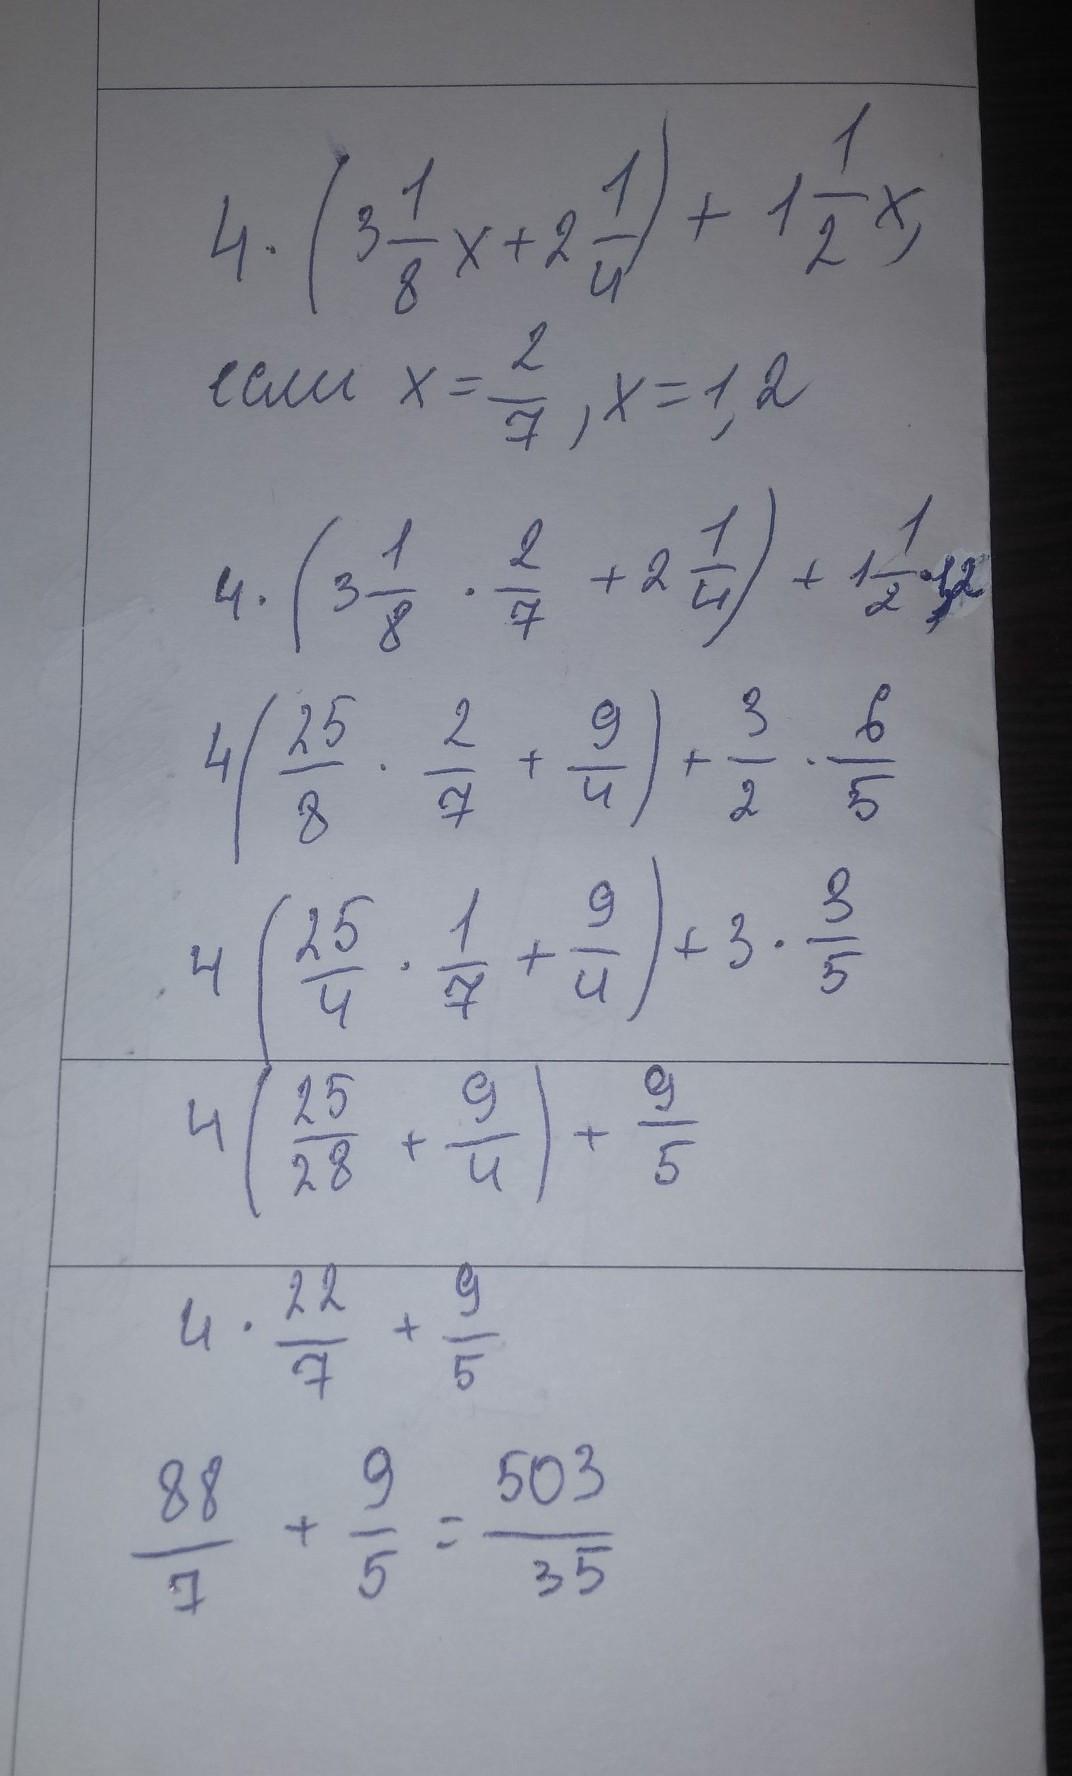 4 · (3 1/8 x + 2 1/4) + 1 1/2 x,
если x = 2/7, x = 1,2
4 · (3 1/8 · 2/7 + 2 1/4) + 1 1/2 · 1,2
4 (25/8 · 2/7 + 9/4) + 3/2 · 6/5
4 (25/4 · 1/7 + 9/4) + 3 · 3/5
4 (25/28 + 9/4) + 9/5
4 · 22/7 + 9/5
88/7 + 9/5 = 503/35